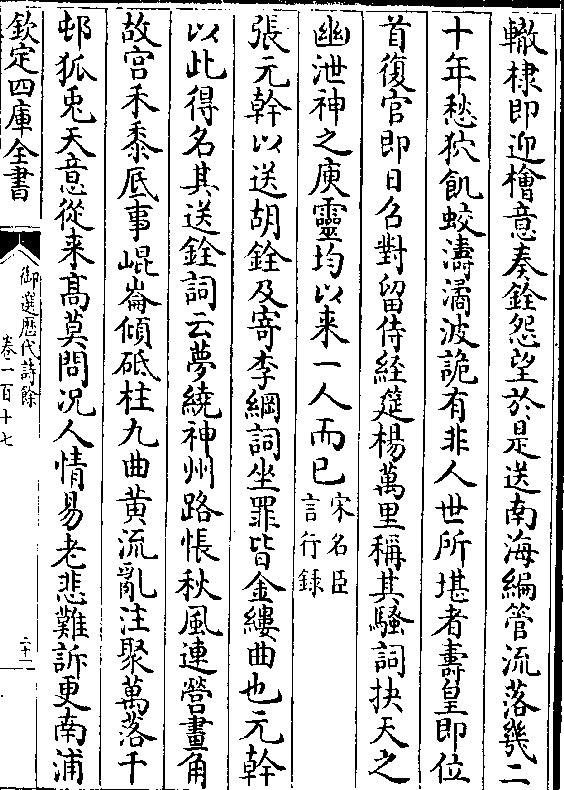 轍棣即迎檜意奏銓怨望於是送南海編管流落㡬二
十年愁狖飢蛟濤潏波詭有非人世所堪者壽皇即位
首復官即日名對留侍経筵楊萬里稱其騷詞抉天之
幽泄神之庾靈均以来一人而已宋名臣言行録
張元幹以送胡銓及寄李綱詞坐罪皆金縷曲也元幹
以此得名其送銓詞云夢繞神州路悵秋風連營畫角
故宫禾黍底事崐崙傾砥柱九曲黄流亂注聚萬落千
邨狐兎天意從来髙莫問况人情易老悲難訴更南浦
欽定四庫全書
御選歴代詩餘
卷一百十七
二十一